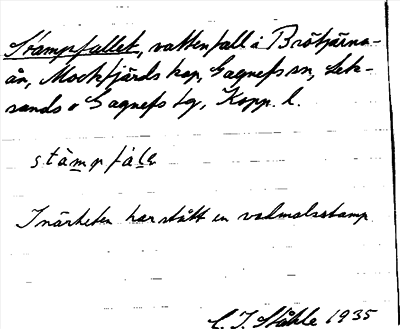 Stampfallet, vattenfall i Brötjärna-
ån, Mockfjärds kap, Gagnefs sn, Lek-
sands o Gagnefs tg, Kopp. l.
stàmpfàlə
I närheten har stått en vadmalsstamp.
C. I. Ståhle 1935